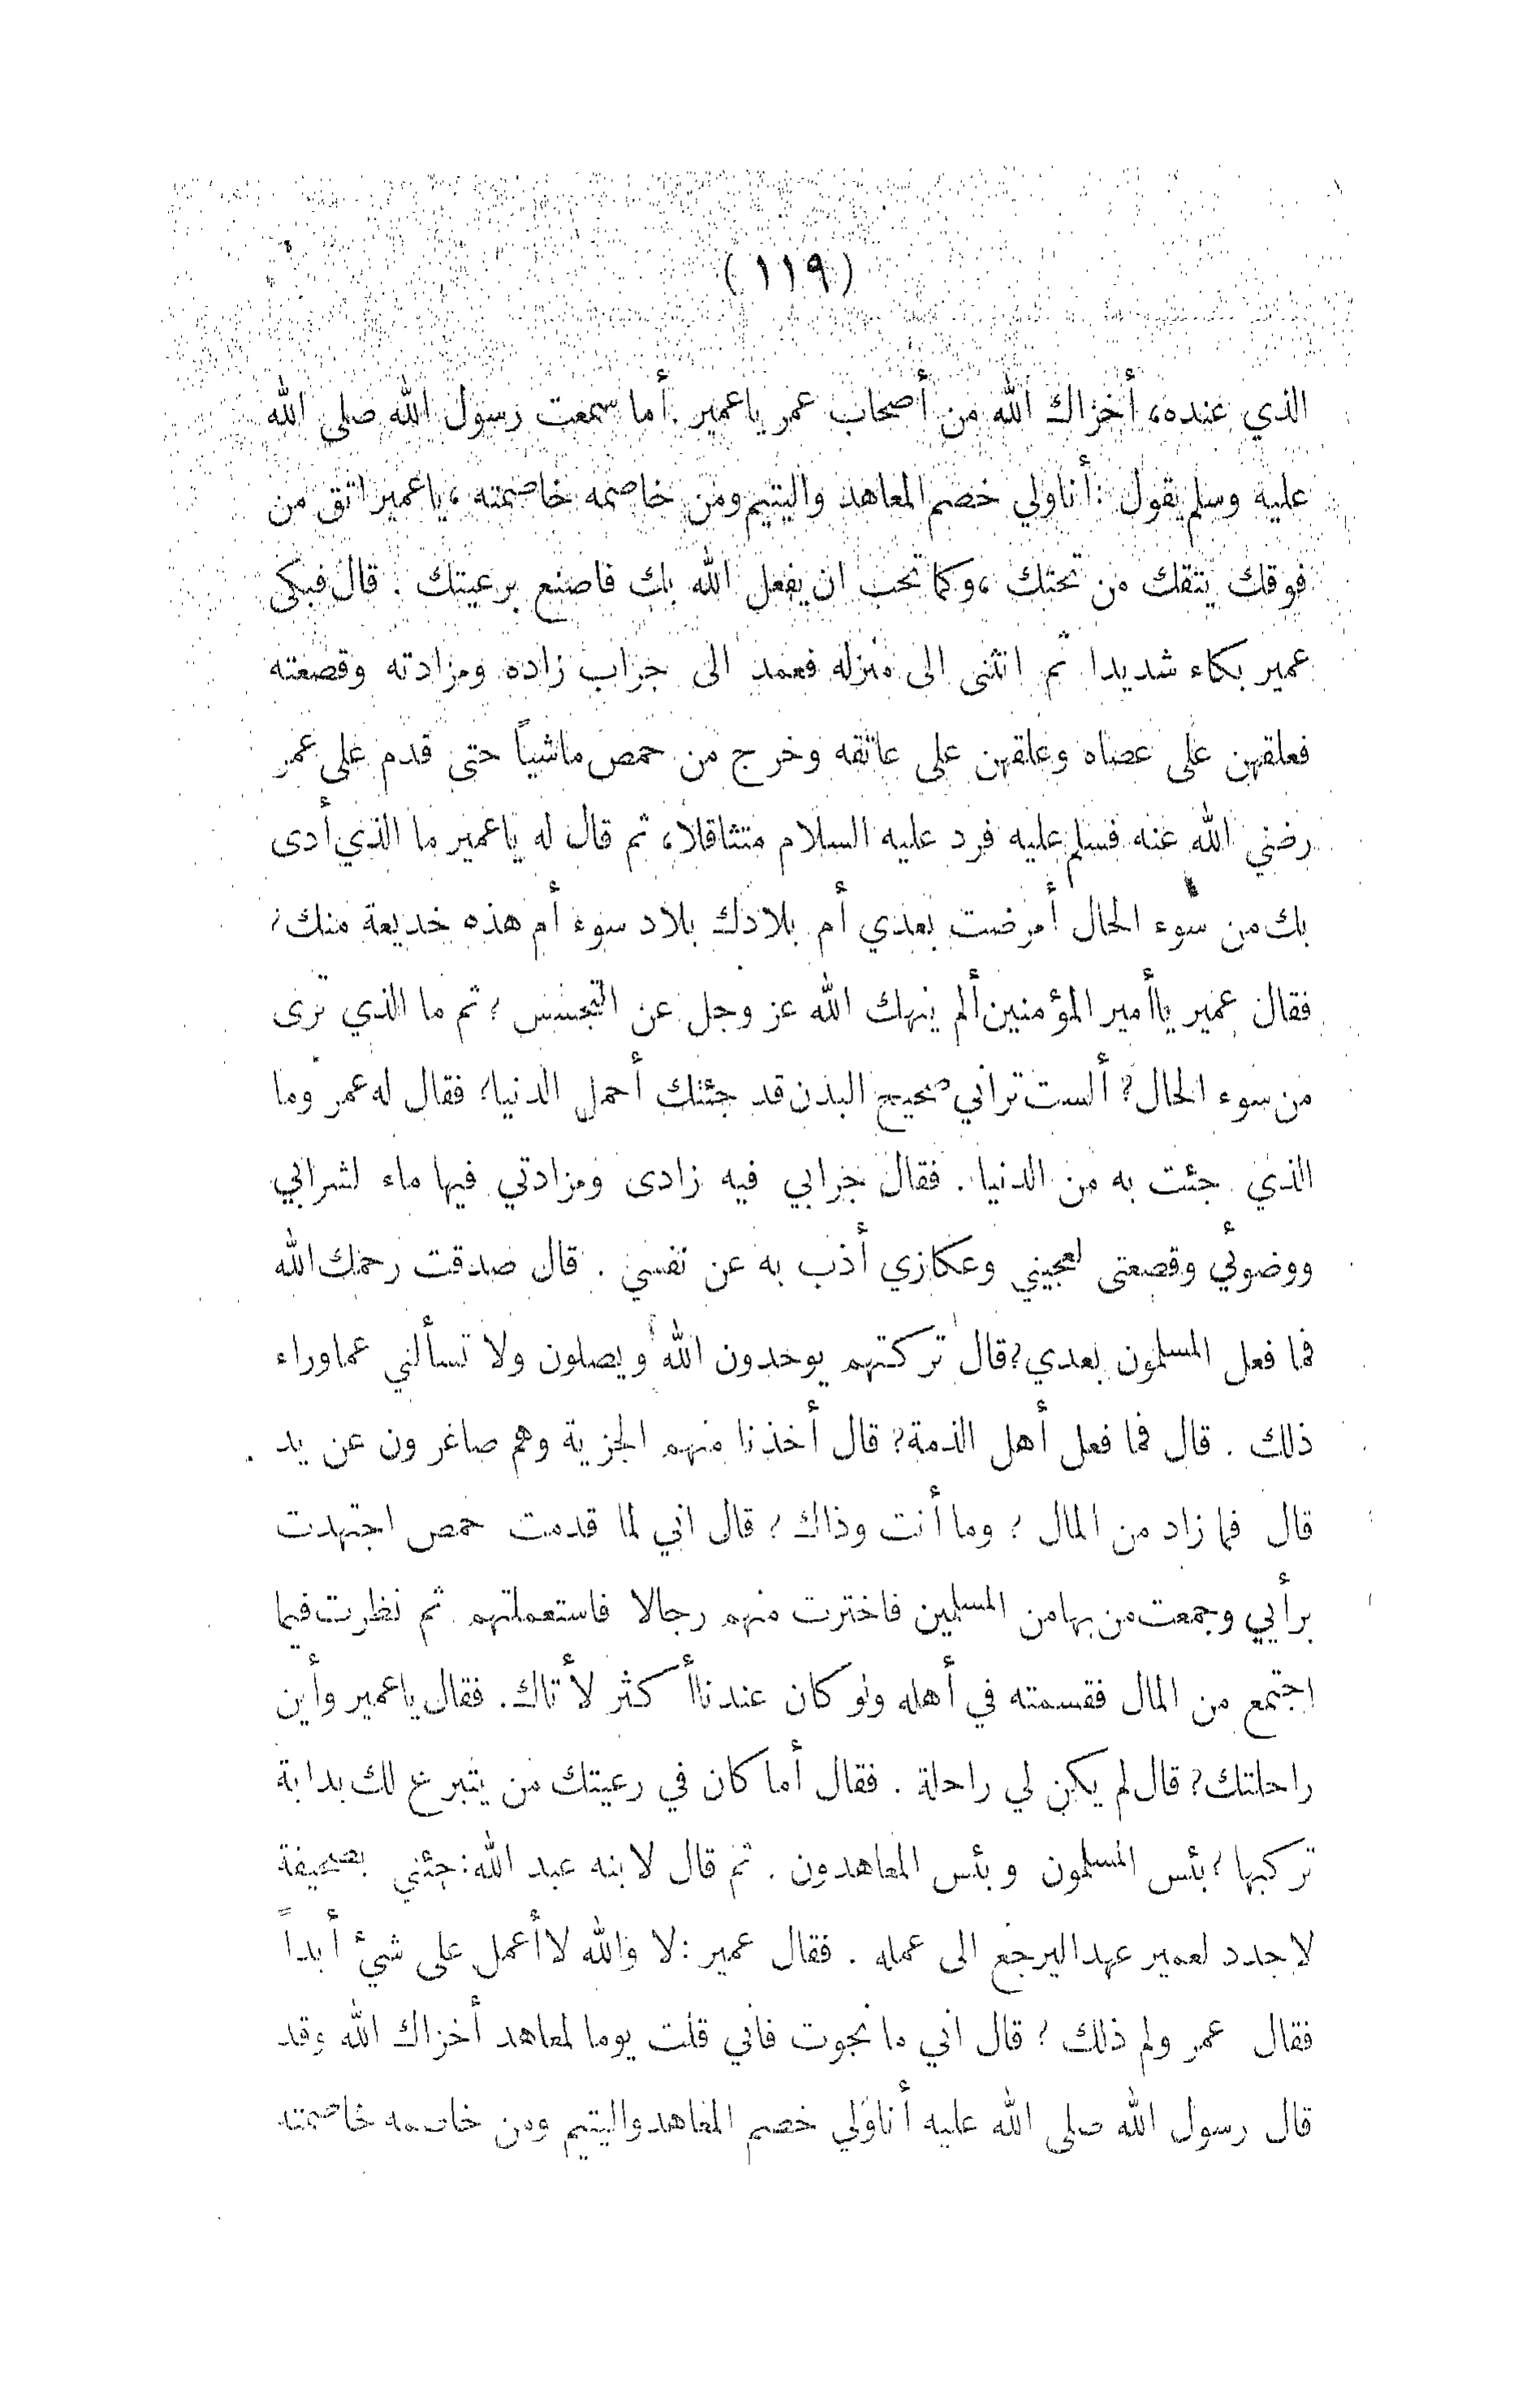 (١١٩)
الذي عنده، أخزاك الله من أصحاب عمر ياعمير. أما سمعت رسول الله صلى الله
عليه وسلم يقول: أنا ولي خصم المعاهد واليتيم ومن خاصمه خاصمته، ياعمير اتق من
فوقك يتقك من تحتك، وكما تحب ان يفعل الله بك فاصنع برعيتك. قال فبكى
عمير بكاء شديدا ثم انثنى الى منزله فعمد الى جراب زاده ومزادته وقصعته
فعلقهن على عصاه وعلقهن على عاتقه وخرج من حمص ماشياً حتى قدم على عمر
رضي الله عنه فسلم عليه فرد عليه السلام متثاقلا، ثم قال له ياعمير ما الذي أدى
بك من سوء الحال أمرضت بعدي أم بلادك بلاد سوء أم هذه خديعة منك؟
فقال عمير ياأمير المؤمنين ألم ينهك الله عز وجل عن التجسس؟ ثم ما الذي ترى
من سوء الحال؟ ألست تراني صحيح البدن قد جئتك أحمل الدنيا؟ فقال له عمر وما
الذي جئت به من الدنيا. فقال جرابي فيه زادى ومزادتي فيها ماء لشرابي
ووضوئي وقصعتى لعجيني وعكازي أذب به عن نفسي. قال صدقت رحمك الله
فما فعل المسلمون بعدي؟ قال تركتهم يوحدون الله ويصلون ولا تسألني عما وراء
ذلك. قال فما فعل أهل الذمة؟ قال أخذنا منهم الجزية وهم صاغرون عن يد.
قال فما زاد من المال؟ وما أنت وذاك؟ قال اني لما قدمت حمص اجتهدت
برأيي وجمعت من بها من المسلمين فاخترت منهم رجالا فاستعملتهم. ثم نظرت فيما
اجتمع من المال فقسمته في أهله ولو كان عندنا أكثر لأتاك. فقال ياعمير وأين
راحلتك؟ قال لم يكن لي راحلة. فقال أما كان في رعيتك من يتبرع لك بدابة
تركبها؟ بئس المسلمون وبئس المعاهدون. ثم قال لابنه عبد الله: جئني بصحيفة
لاجدد لعمير عهدا ليرجع الى عمله. فقال عمير: لا والله لا أعمل على شيئ أبداً
فقال عمر ولم ذلك؟ قال اني ما نجوت فاني قلت يوما لمعاهد أخزاك الله وقد
قال رسول الله صلى الله عليه أنا ولي خصم المعاهد واليتيم ومن خاصمه خاصمته